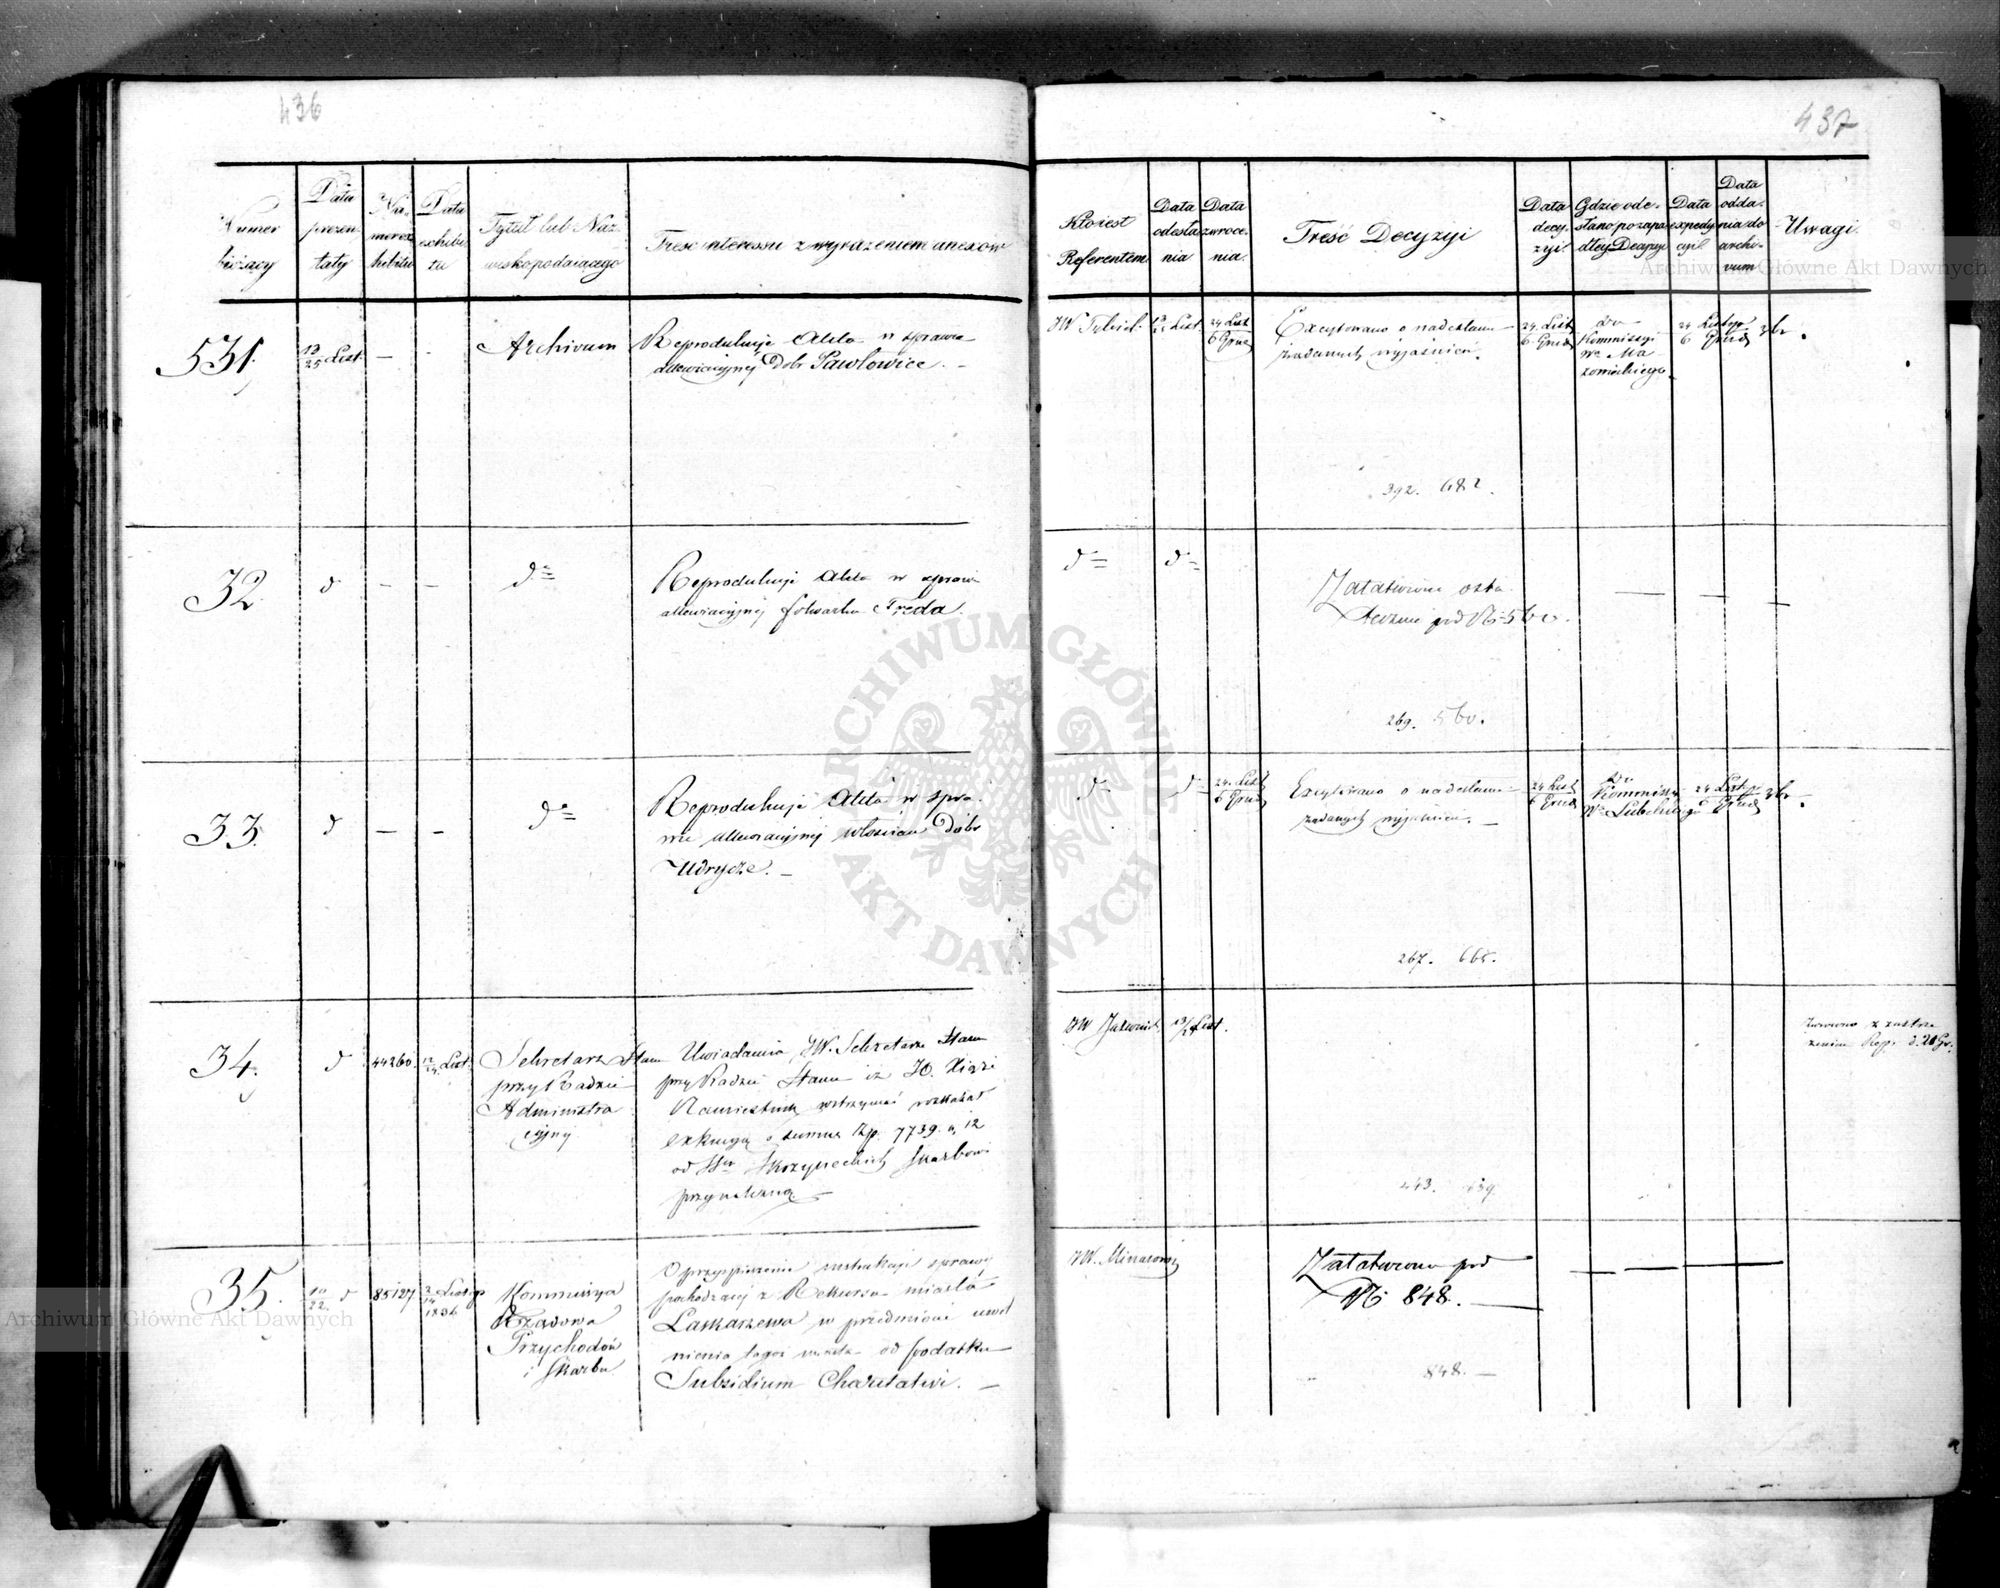 436
Numer
bieżący
Data
prezen
taty
Nu-
merex
hibitu
Data
exhibi
tu
Tytuł lub Naz
wisko podaiącego
Treść interessu z wyrażeniem anexów
531.
13/25 List.
—
-
Archivum
Reprodukuje Akta w sprawie
allewiacyjnej Dobr Pawłowice. -
32
d
-
-
do
Reprodukuje Akta w sprawie
allewiacyjnej folwarku Treda.
33.
d
-
-
do
Reprodukuje Akta w spra-
wie allewiacyjnej włościan Dóbr
Udrycze. -
34.
d
44260.
12/24 List.
Sekretarz Stanu
przy Radzie
Administra
cyjnej
Uwiadamia JW. Sekretarz Stanu
przy Radzie Stanu iż JO. Xiąże
Namiestnik wstrzymać rozkazał
exkucyą o summę Rp. 7739. 12
od Skrzyneckich Skarbowi
przynależną -
35.
10/22. d
85127
2/14 Listop
1836
Kommissya
Rządowa
Przychodów
i Skarbu
O przyspieszenie instrukcji sprawy
pochodzącej z Rekursu miasta
Łaskarzewa w przedmiocie uwol
nienia tegoż miasta od podatku
Subsidium Charitativi. -
437
Kto iest
Referentem
Data
odesła
nia
Data
zwróce
nia.
Treść Decyzyi
Data
decy
zyi.
Gdzie ode-
słano po zapa
dłey Decyzyi
Data
expedy
cyi
Data
odda-
nia do
archi-
vum
Uwagi.
13/25 List.
24 List
6 Grud
Excytowano o nadesłanie
żądanych wyjaśnień.
24. List
6. Grud
do
Kommissyi
Wa Ma
zowieckiego.
24 Listop
6 Grud
392. 682.
do
do
Załatwione osta
tecznie pod N 560.
—
—
—
269. 560.
do
do
24. List
6 Grud
Excytowano o nadesłanie
żądanych wyjaśnień. -
24 List
6 Grud
do
Kommissyi
Wa Lubelskiego
24 Listop
6 Grud
267. 665.
JW
13/25 List.
Zwrócono z zastrze
żeniem
443. 639.
JW.
Załatwiono pod
N 848. —
—
—
—
848. -
ARCHIWUM GŁÓWNE AKT DAWNYCH
Archiwum Główne Akt Dawnych
Archiwum Główne Akt Dawnych